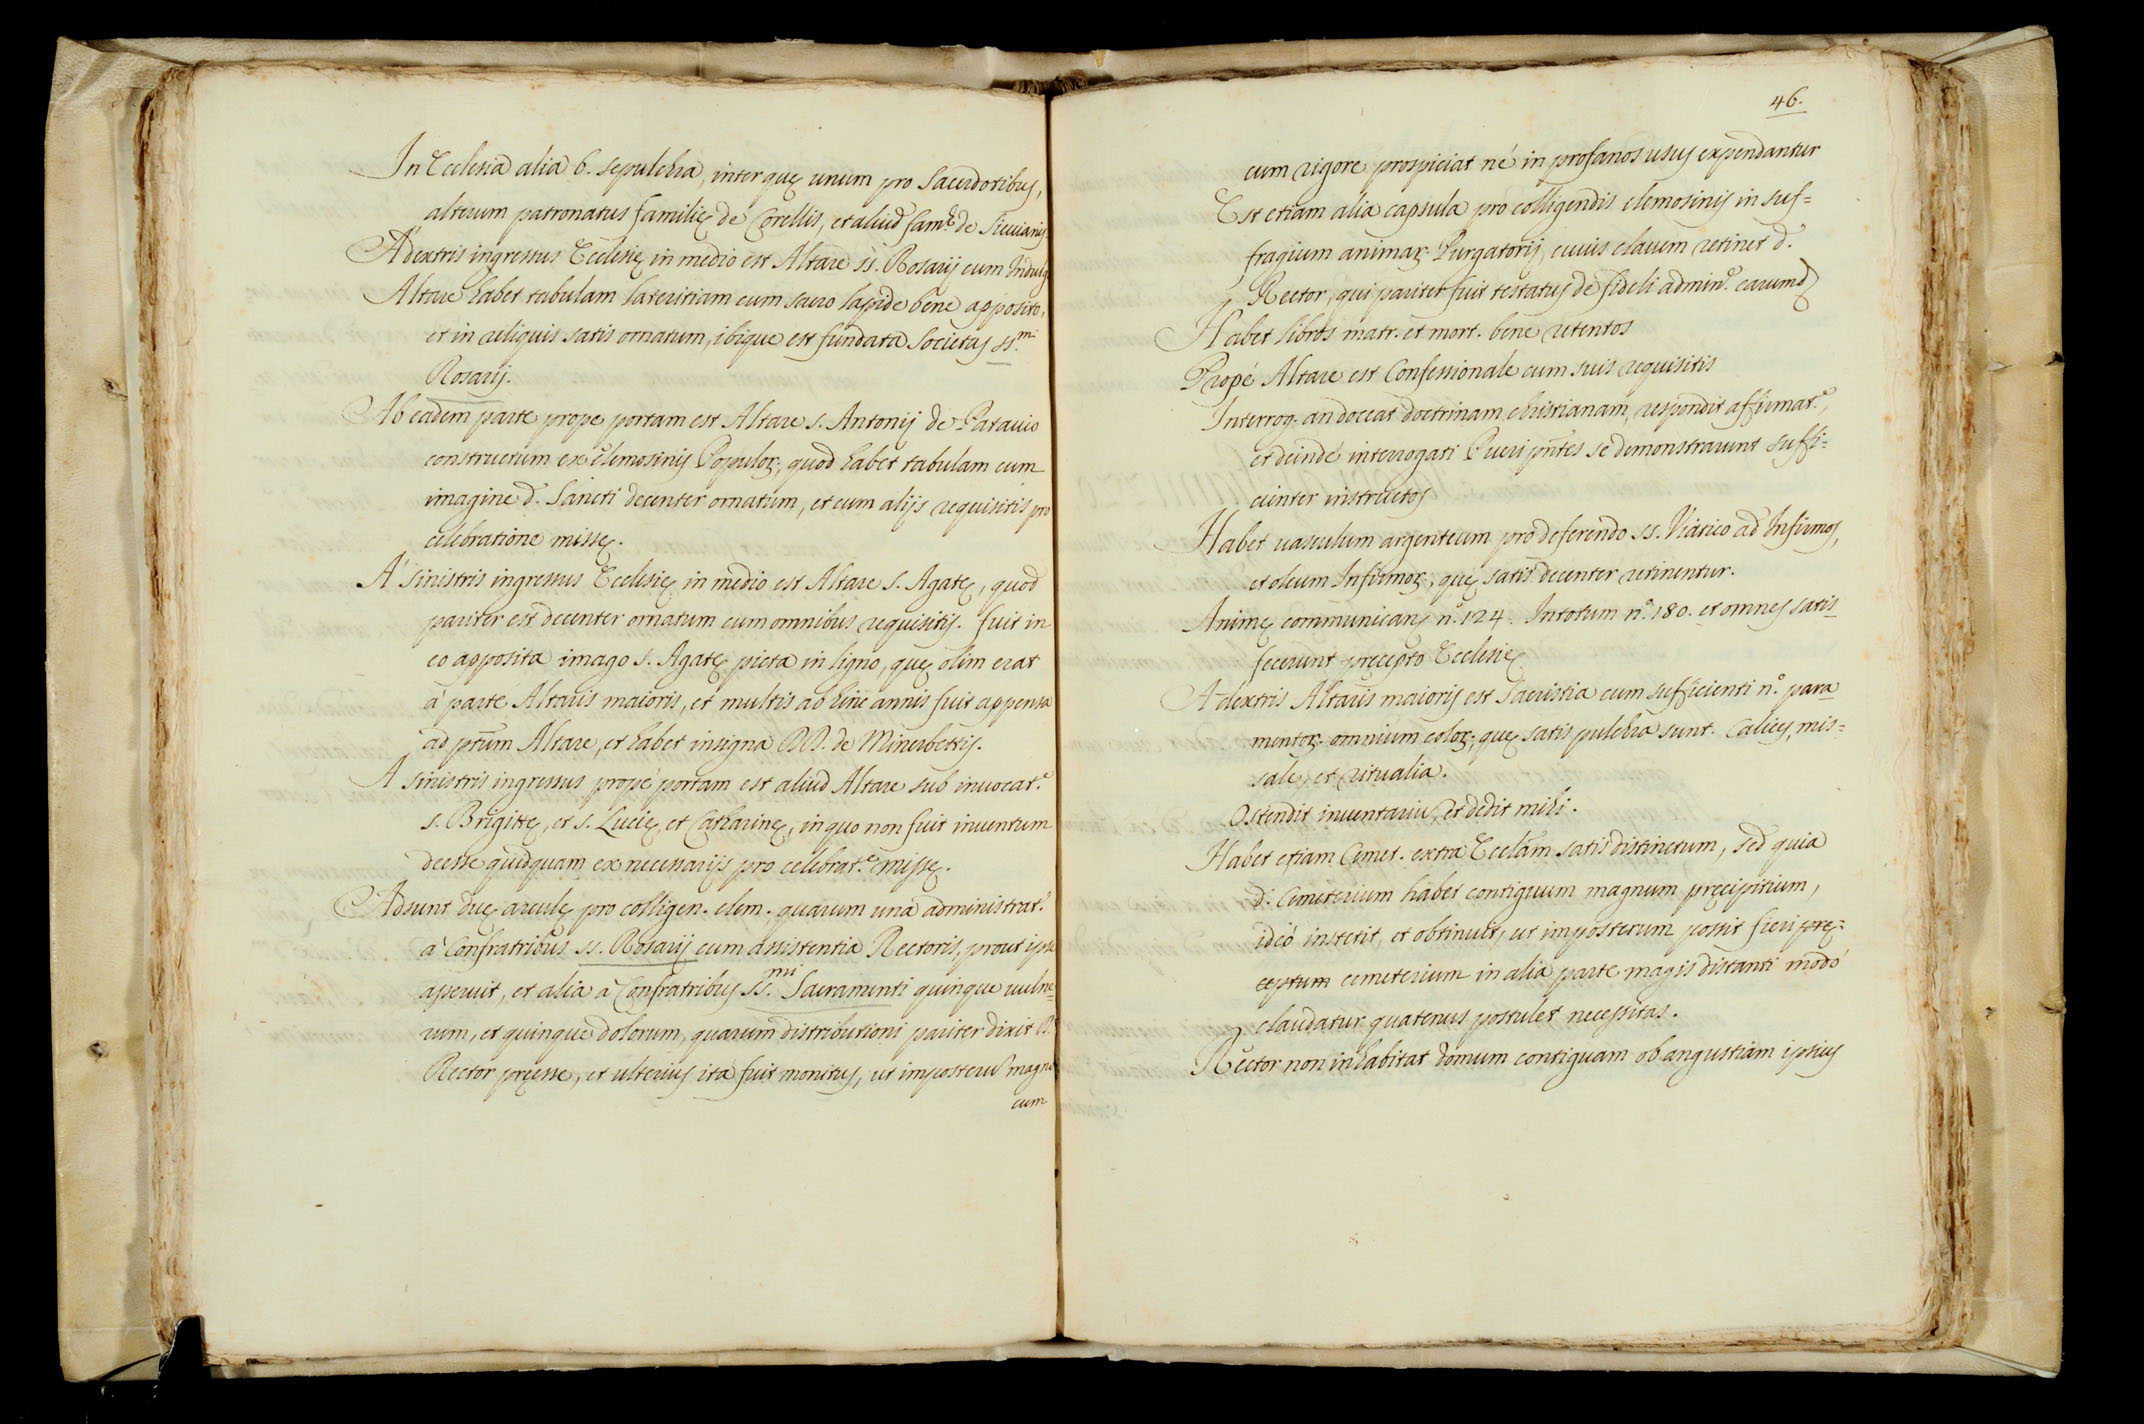 In Ecclesia alia 6. sepulchra, inter quę unum pro Sacerdotibus,
alterum patronatus familię de Corellis, et aliud fam.ę de
A dextris ingressus Ecclesię in medio est Altare SS. Rosarij cum Indulg
Altare habet tabulam lateritiam cum sacro lapide bene apposito,
et in reliquis satis ornatum, ibique est fundata Societas SS.mi
Rosarij.
Ab eadem parte prope portam est Altare S. Antonij de Patauio
constructum ex elemosinis Populoꝝ, quod habet tabulam cum
imagine d. Sancti decenter ornatum, et cum alijs requisitis pro
celebratione missę.
A' sinistris ingressus Ecclesię in medio est Altare S. Agatę, quod
pariter est decenter ornatum cum omnibus requisitis. fuit in
eo apposita imago S. Agatę picta in ligno, quę olim erat
à parte Altaris maioris, et multis ab hinc annis fuit appensa
ad ptum Altare, et habet insignia DD. de Minerbettis.
A sinistris ingressus propè portam est aliud Altare sub inuocat.e
S. Brigittę, et S. Lucię, et Catharinę, in quo non fuit inuentum
deesse quidquam ex necessarijs pro celebrat.e missę.
Adsunt duę arculę pro colligen. elem. quarum una administrat.r
à Confratribus SS. Rosarij cum assistentia Rectoris, prout ipse
asseruit, et alia à Confratribus SS.mi Sacramenti quinque vulne=
rum, et quinque dolorum, quarum distributioni pariter dixit
Rector pręesse, et ulterius ita fuit monitus, ut imposteru magno
cum
46.
cum rigore prospiciat nè in profanos usus expendantur
Est etiam alia capsula pro colligendis elemosinis in suf=
fragium animaꝝ Purgatorij, cuius clauem retinet d.
Rector, qui pariter fuit testatus de fideli admin.e earumd
Habet libros matr. et mort. bene retentos
Propè Altare est Confessionale cum suis requisitis
Interrog. an doceat doctrinam christianam, respondit affirmat.e,
et deindè interrogati Pueri pntes se demonstrarunt suffi=
cienter instructos
Habet vasculum argenteum pro deferendo SS. Viatico ad Infirmos,
et oleum Infirmoꝝ, quę satis decenter retinentur.
Animę communicanę n.o 124. In totum n.o 180. et omnes satis
fecerunt pręcepto Ecclesię
A dextris Altaris maioris est Sacristia cum sufficienti n.o para
mentoꝝ omnium coloꝝ, quę satis pulchra sunt. Calices, mis=
sale, et ritualia.
Ostendit inuentariu, et dedit mihi.
Habet etiam Cemet. extra Ecclam satis distinctum, sed quia
d. Cemeterium habet contiguum magnum pręcipitium,
ideò institit, et obtinuit, ut imposterum possit fieri prę=
ceptum cemeterium in alia parte magis distanti modò
claudatur quatenus postulet necessitas.
Rector non inhabitat domum contiguam ob angustiam ipsius